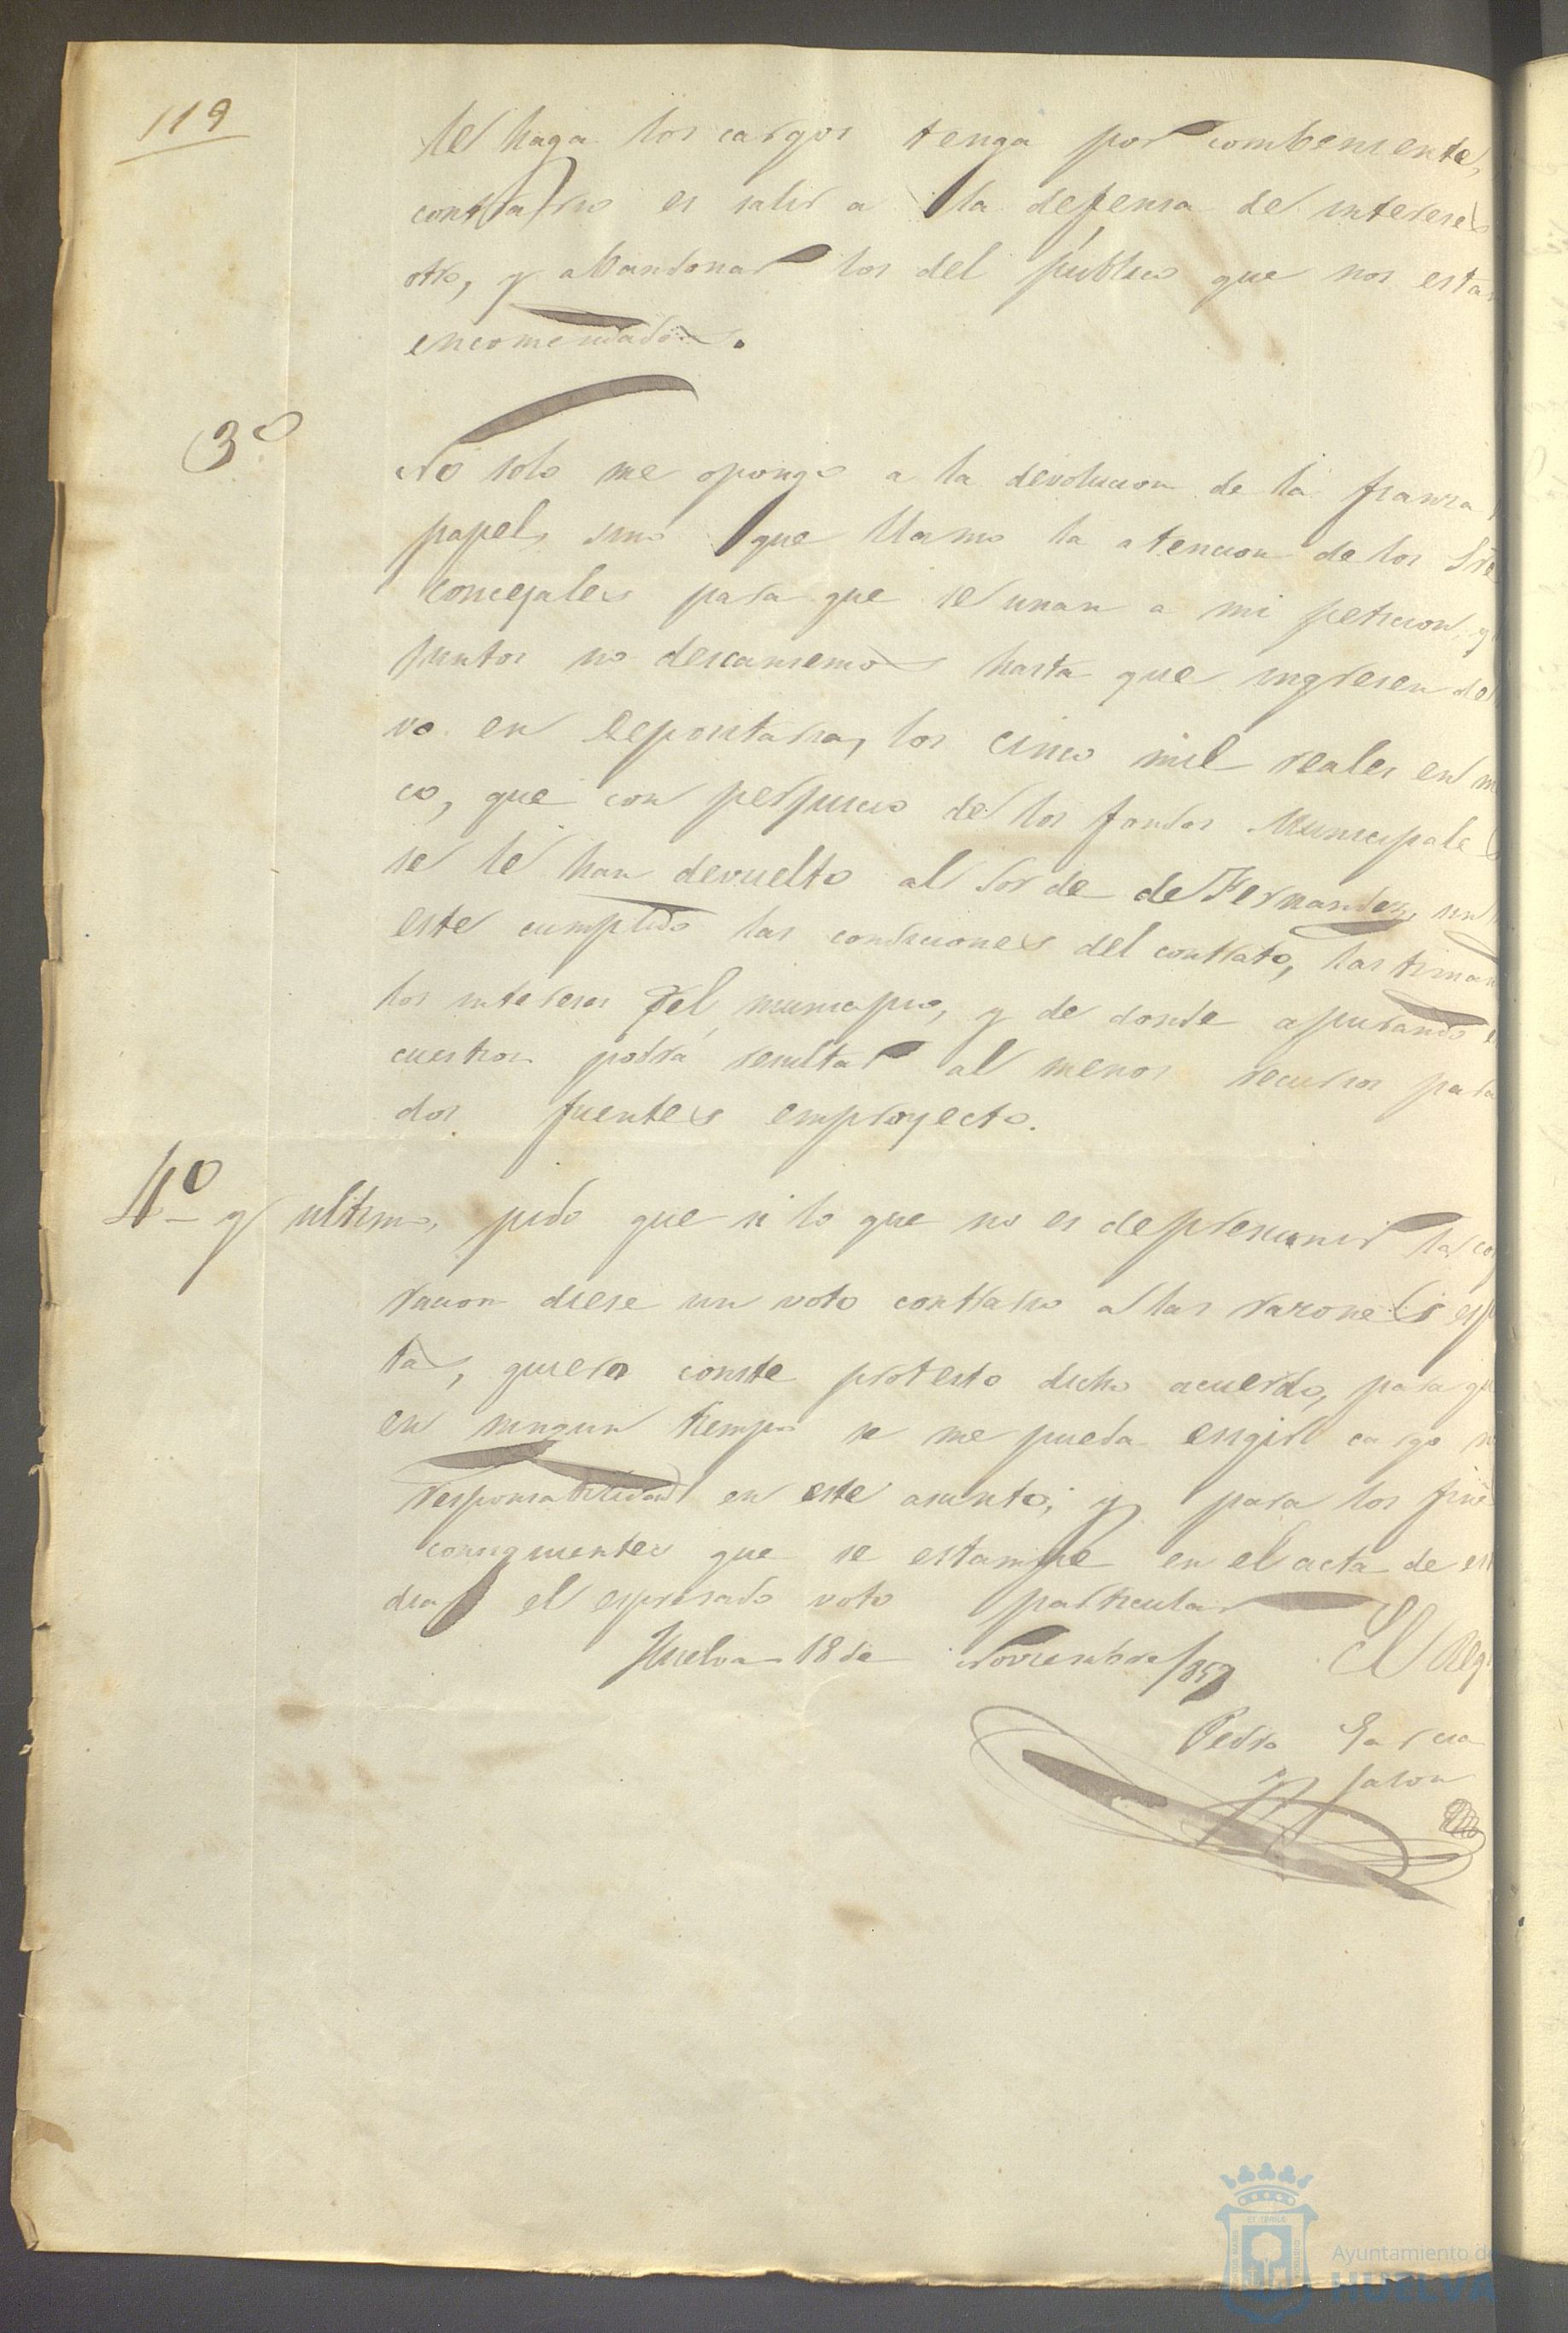 119
le haga los cargos tenga por combeniente,
contrario es salir a la defensa de intereses
otro, y abandonar los del público que nos estan
encomendados.
3º
No solo me opongo a la devolucion de la fianza
papel, sino que llamo la atencion de los Sre
concejales para que se unan a mi peticion, y
juntos no descansemos hasta que ingresen de
vo en depositaria, los cinco mil reales en m
co, que con perjuicio de los fondos Municipales
se le han devuelto al Sor de de Fernandez, sin
este cumplido las condiciones del contrato, lastiman
los intereses del municipio, y de donde apurando
cuestion podrá resultar al menos recursos para
dos fuentes emproyecto.
4º y ultimo, pido que si lo que no es depresumir la co
racion diese un voto contrario a las razones esp
tas, quiero conste protesto dicho acuerdo, para qu
en ningun tiempo se me pueda exigir cargo n
responsabilidad en este asunto; y para los fine
consiguientes que se estampe en el acta de es
dia el espresado voto particular
Huelva 18 de Noviembre/859 El Reg
Pedro Garcia
y Jalon
Ayuntamiento de
HUELVA